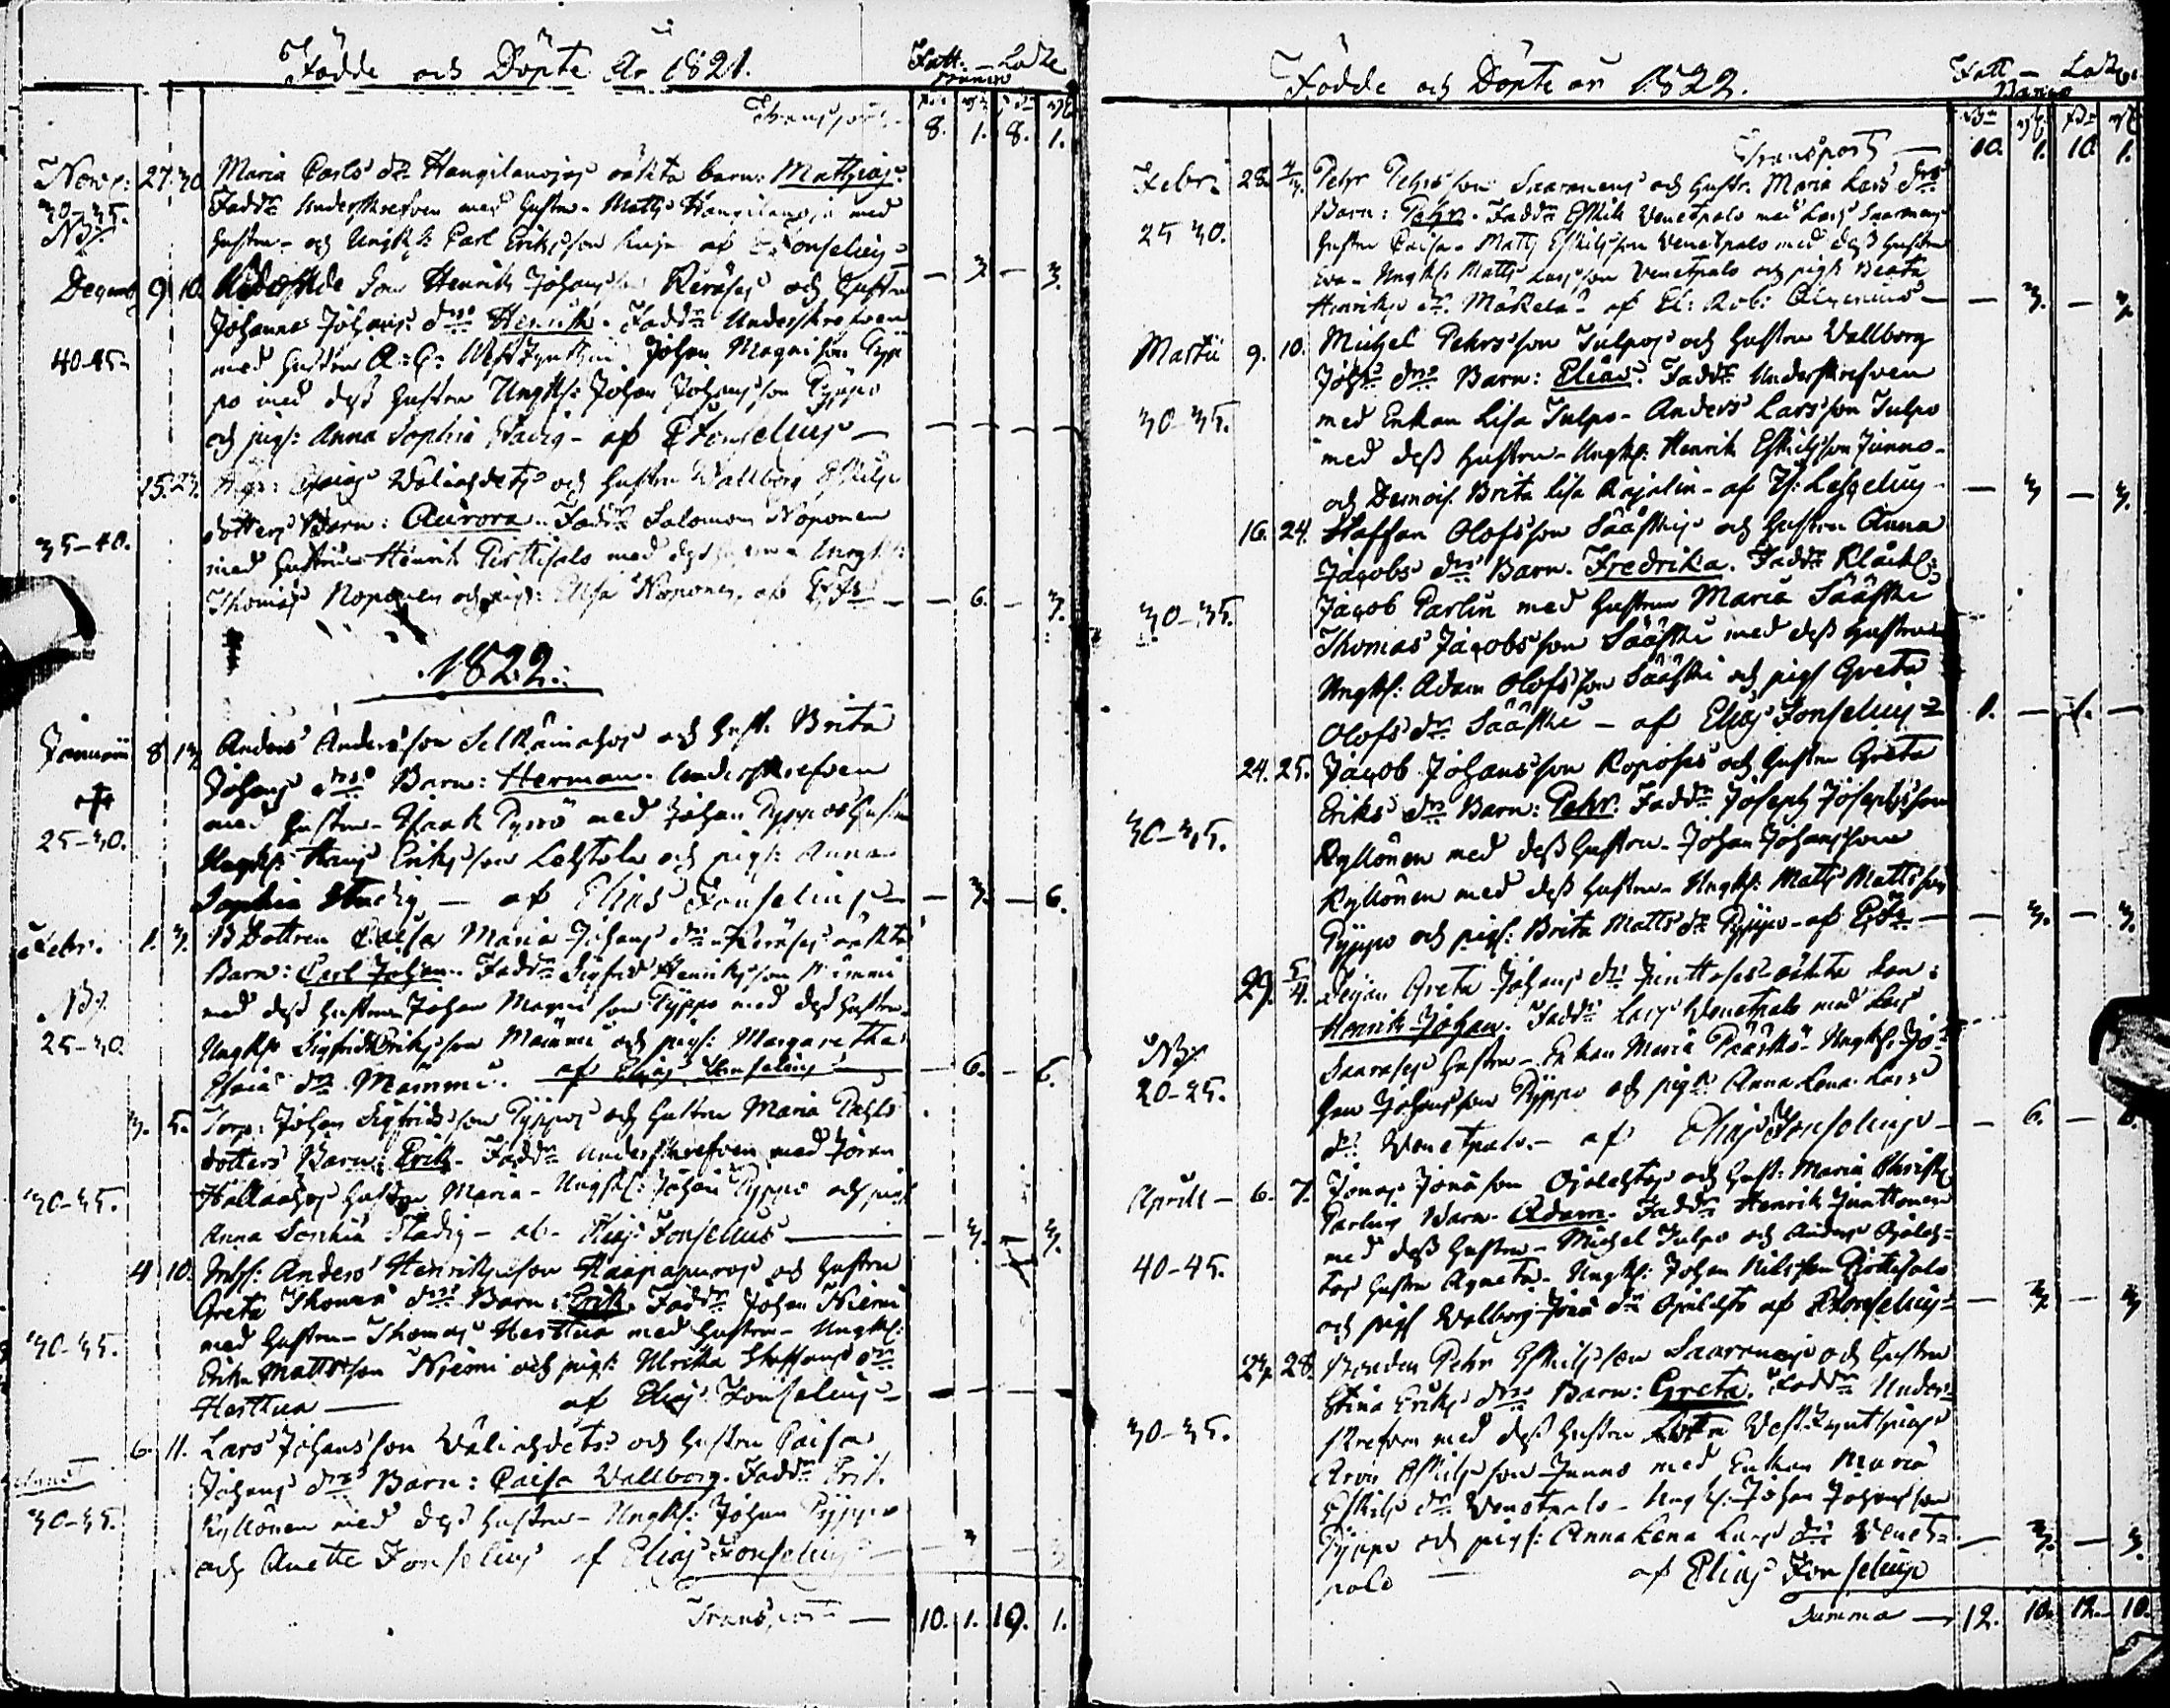 Födde och Döpte År 1821.
Fatt. — Lade
Transport
8. 1. 8. 1.
Novr: 27. 30. Maria Carls dr Kangilanojas oäkta barn: Matthias.
30-35. Faddr Underskrefven med hustru - Matts Kangilanoja med
Nb. hustru - och Ungk: Carl Eriksson af E Fonselius — 3. — 3.
Decemb 9. 10. Son Henrik Johansson Keräses och hustru
Johanna Johans drs Henrik. Faddr Underskrefven
40-45. med hustru Johan Magni son Pyp
po med dess hustru Ungk: Johan Johansson Pyppo
och pig: Anna Sophia Stadig - af E Fonselius — — — —
15. 23. Wäliahdets och hustru Wallborg Eskils
dotters Barn: Aurora. Faddr Salomon Noponen
35-40. med hustru Henrik Pirttisalo med dess hustru Ungk:
Thomas Noponen och pig: Elisa Noponen, af E Fs — 6. — 3.
1822.
Januarii 8 13 Anders Andersson Selkämahos och hust. Brita
Johans drs Barn: Herman. Underskrefven
25-30. med hustru - Isaak Pyrrö med Johan Pyppos hustru
Ungk: Hans Eriksson Lehtola och pig: Anna
Sophia Stadig — af Elias Fonselius — 3. — 6.
Febr. 1. 3. B Dottren Caisa Maria Johans dr Keräses oäkta
Barn: Carl Johan. Faddr Sigfrid Henriksson Mämmi
Nb. med dess hustru Johan Magni son Pyppo med dess hustru
25-30. Ungk: Sigfrid Eriksson Mämmi och pig: Margaretha
Esaia dr Mämmi. af Elias Fonselius — 6. — 6.
3. 5. Torp: Johan Sigfridsson Pyppos och hustru Maria Pehrs
dotters Barn: Erik. Faddr Underskrefven med Jöran
30-35. Hallaahos hustru Maria - Ungk: Johan Pyppo och pig
Anna Sophia Stadig - af Elias Fonselius — 3. — 3.
4 10. Inhs: Anders Henriksson Haapapuros och hustru
Greta Thomas drs Barn: Erik. Faddr Johan Niemi
30-35. med hustru - Thomas Herttua med hustru - Ungk:
Erik Mattsson Niemi och pig: Ulrika Staffans dr
Herttua — af Elias Fonselius — — — —
6. 11. Lars Johansson Wäliahdets och hustru Caisa
Johans drs Barn: Caisa Wallborg. Faddr Erik
30-35. Kyllönen med dess hustru - Ungk: Johan Pyppo
och Anette Fonselius af Elias Fonselius — 3 — 3
Transport — 10. 1. 10. 1.
Födde och Döpte år 1822.
Fatt — Lade
Banco
Transport — 10. 1. 10. 1.
Febr. 28. Pehr Pehrsson Saarenens och hustr. Maria Lars drs
25 30. Barn: Pehr. Faddr Eskil Venetpalo med Lars Saarenens
hustru Caisa - Matts Eskilsson Venetpalo med dess hustru
Eva - Ungk: Matts Larsson Venetpalo och pig: Beata
Henriks dr Mäkelä af — 3. — 3.
Martii 9. 10. Michel Pehrsson Tulpos och hustru Wallborg
Joh: drs Barn: Elias. Faddr Underskrefven
30-35. med Enkan Lisa Tulpo - Anders Larsson Tulpo
med dess hustru - Ungk: Henrik Eskilsson Junno -
och Demois. Brita Lisa Rajalin - af — 3 — 3.
16. 24. Staffan Olofsson Sääskis och hustru Anna
Jacobs drs Barn. Fredrika. Faddr Klock:
30-35. Jacob Parlin med hustru Maria Sääski
Thomas Jacobsson Sääski med dess hustru
Ungk: Adam Olofsson Sääski och pig Greta
Olofs dr Sääski - af Elias Fonselius 1. — 1. —
24. 25. Jacob Johansson Koposes och hustru Greta
Eriks drs Barn: Pehr. Faddr Joseph Josephsson
30-35. Kyllönen med dess hustru - Johan Johansson
Kyllönen med dess hustru - Ungk: Matts Mattsson
Pyppo och pig: Brita Matts dr Pyppo - af E Fs — 3. — 3.
29. 5/4. Pigan Greta Johans drs Junttoses oäkta Son:
Henrik Johan. Faddr Lars Venetpalo med Lars
Nb. Saareses hustru - Enkan Maria Pääskö - Ungk: Jo-
20-25. han Johansson Pyppo och pig: Anna Lena Lars
dr Venetpalo - af Elias Fonselius — 6. — 6.
Aprill - 6. 7. Jonas Jonasson Ojalehtos och hust: Maria Christ:
Parlins Barn. Adam. Faddr Henrik Junttonen
40-45. med dess hustru - Michel Tulpo och Anders Ojaleh-
tos hustru Agneta - Ungk: Johan Nilsson Pirttisalo
och pig Walborg Jona dr Ojalehto af E Fonselius — 3 — 3
27. 28. Bonden Pehr Eskilsson Saarenens och hustru
Stina Eriks drs Barn: Greta. Faddr Under-
30-35. skrefven med dess hustru
Eskilsson Junno med Enkan Maria
Eskils dr Venetpalo - Ungk: Johan Johansson
Pyppo och pig: Anna Lena Lars dr Venet- — 3. — 3.
palo af Elias Fonselius
Summa — 12. 10. 12. 10.